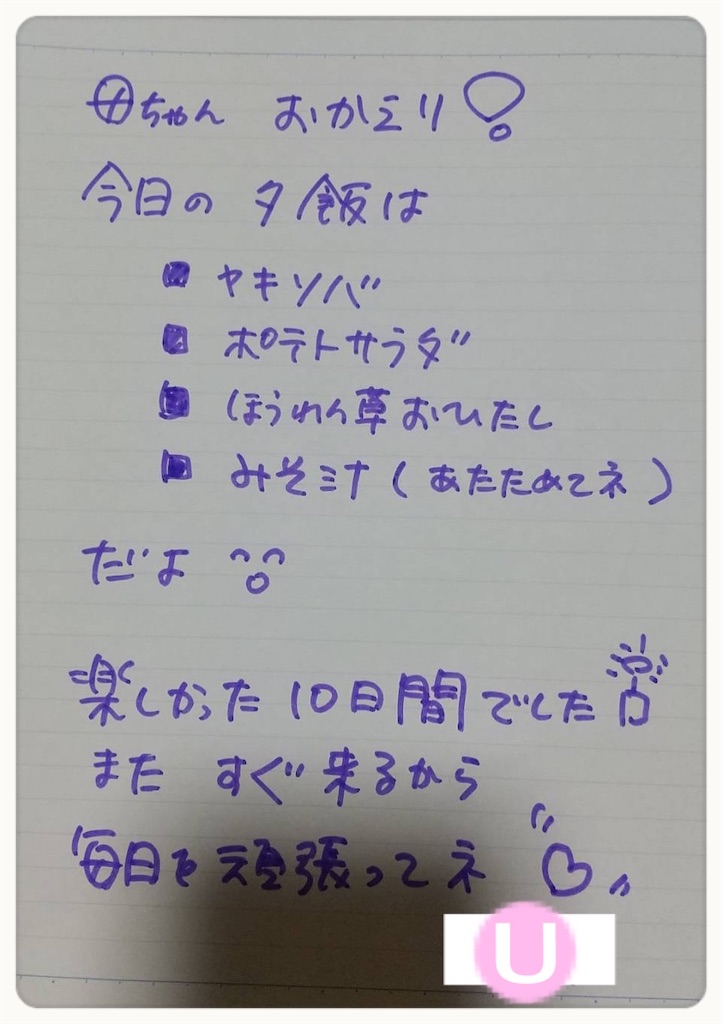 母ちゃん おかえり!
今日の 夕飯は
■ ヤキソバ
■ ポテトサラダ
■ ほうれん草おひたし
■ みそミナ(あたためてネ)
だよ ^o^
楽しかった10日間でした
また すぐ来るから
毎日を頑張ってネ ♡
U